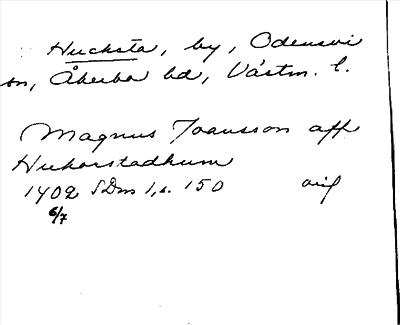 Hucksta, by, Odensvi
sn, Åkerbo hd, Västm. l.
Magnus Joansson aff
Hukorstadhum
1402 SDns 1, s. 150 orig
6/7